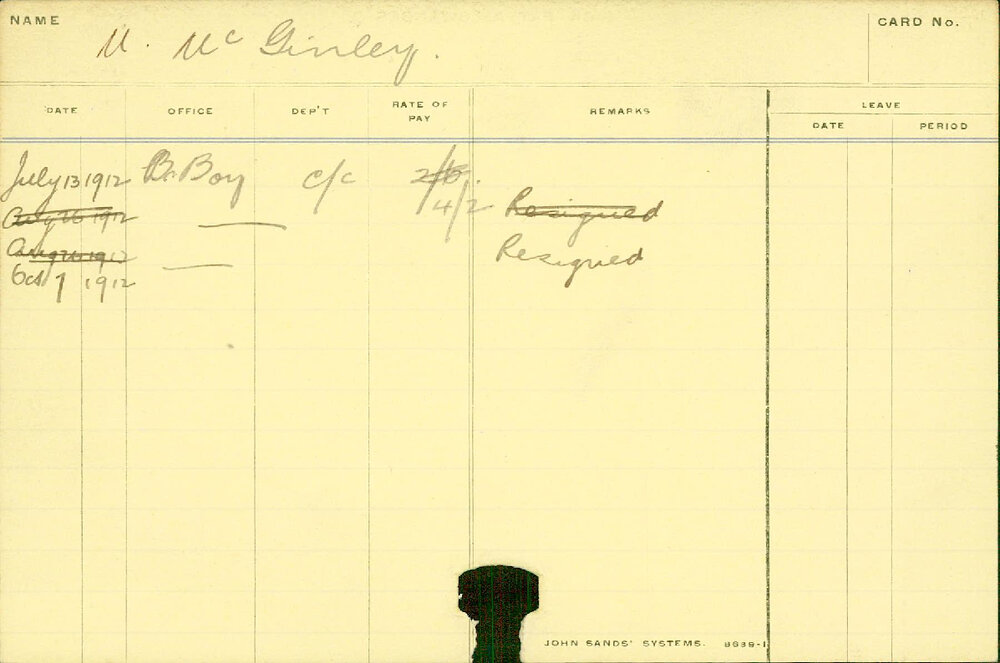 NAME
M. McGinley.
CARD No.
DATE OFFICE DEP'T RATE OF PAY REMARKS LEAVE
DATE PERIOD
July 13 1912 B. Boy c/c 2/6.
Aug 26 1912 — 4/2 Resigned
Aug 26 1912 — Resigned
Oct 7 1912
JOHN SANDS' SYSTEMS. 8639-1